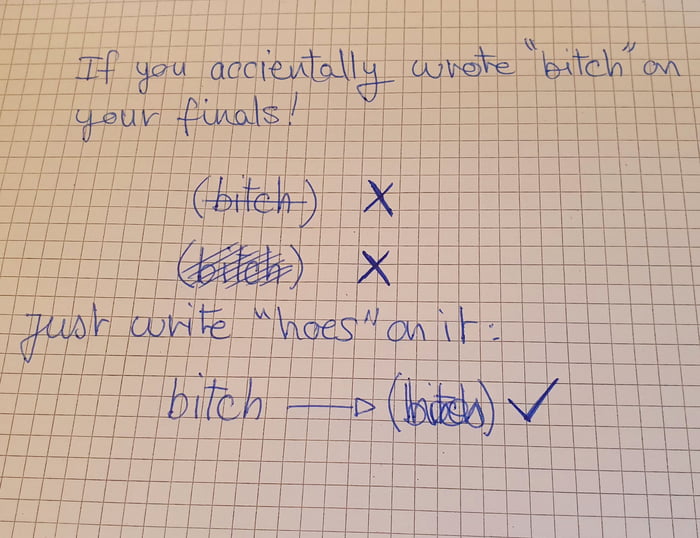 If you accientally wrote "bitch" on
your finals!
(bitch) X
(bitch) X
Just write "hoes" on it:
bitch → () ✓